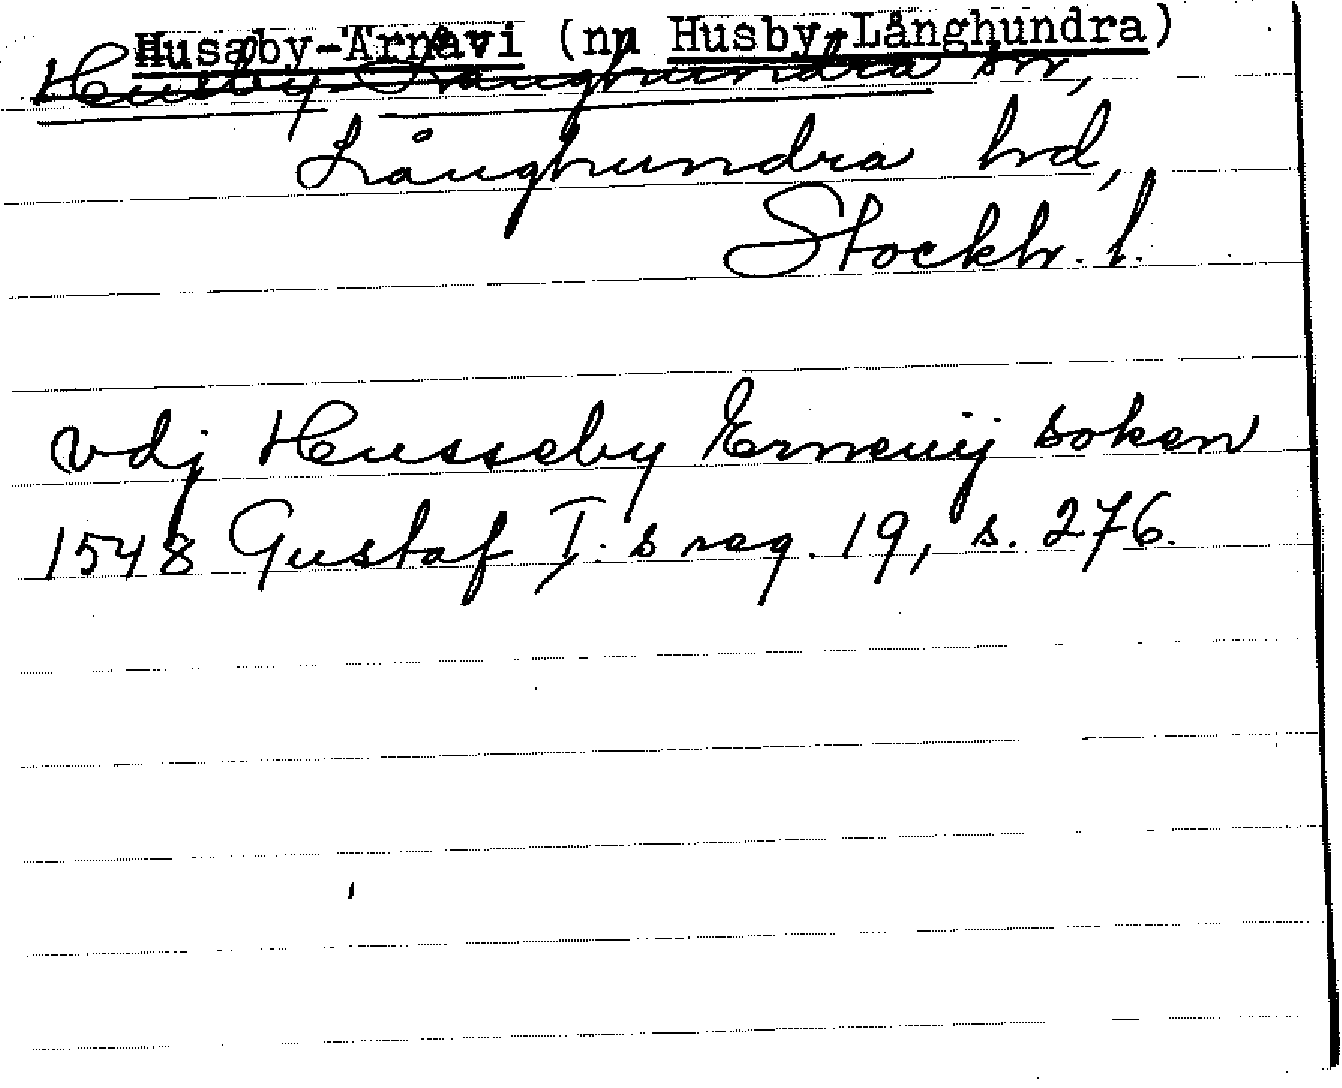 Husaby-Arnavi (nu Husby-Långhundra)
Husby-Långhundra sn,
Långhundra hd,
Stockh. l.
vdj Husseby Erneuij soken
1548 Gustaf I:s reg. 19, s. 276.